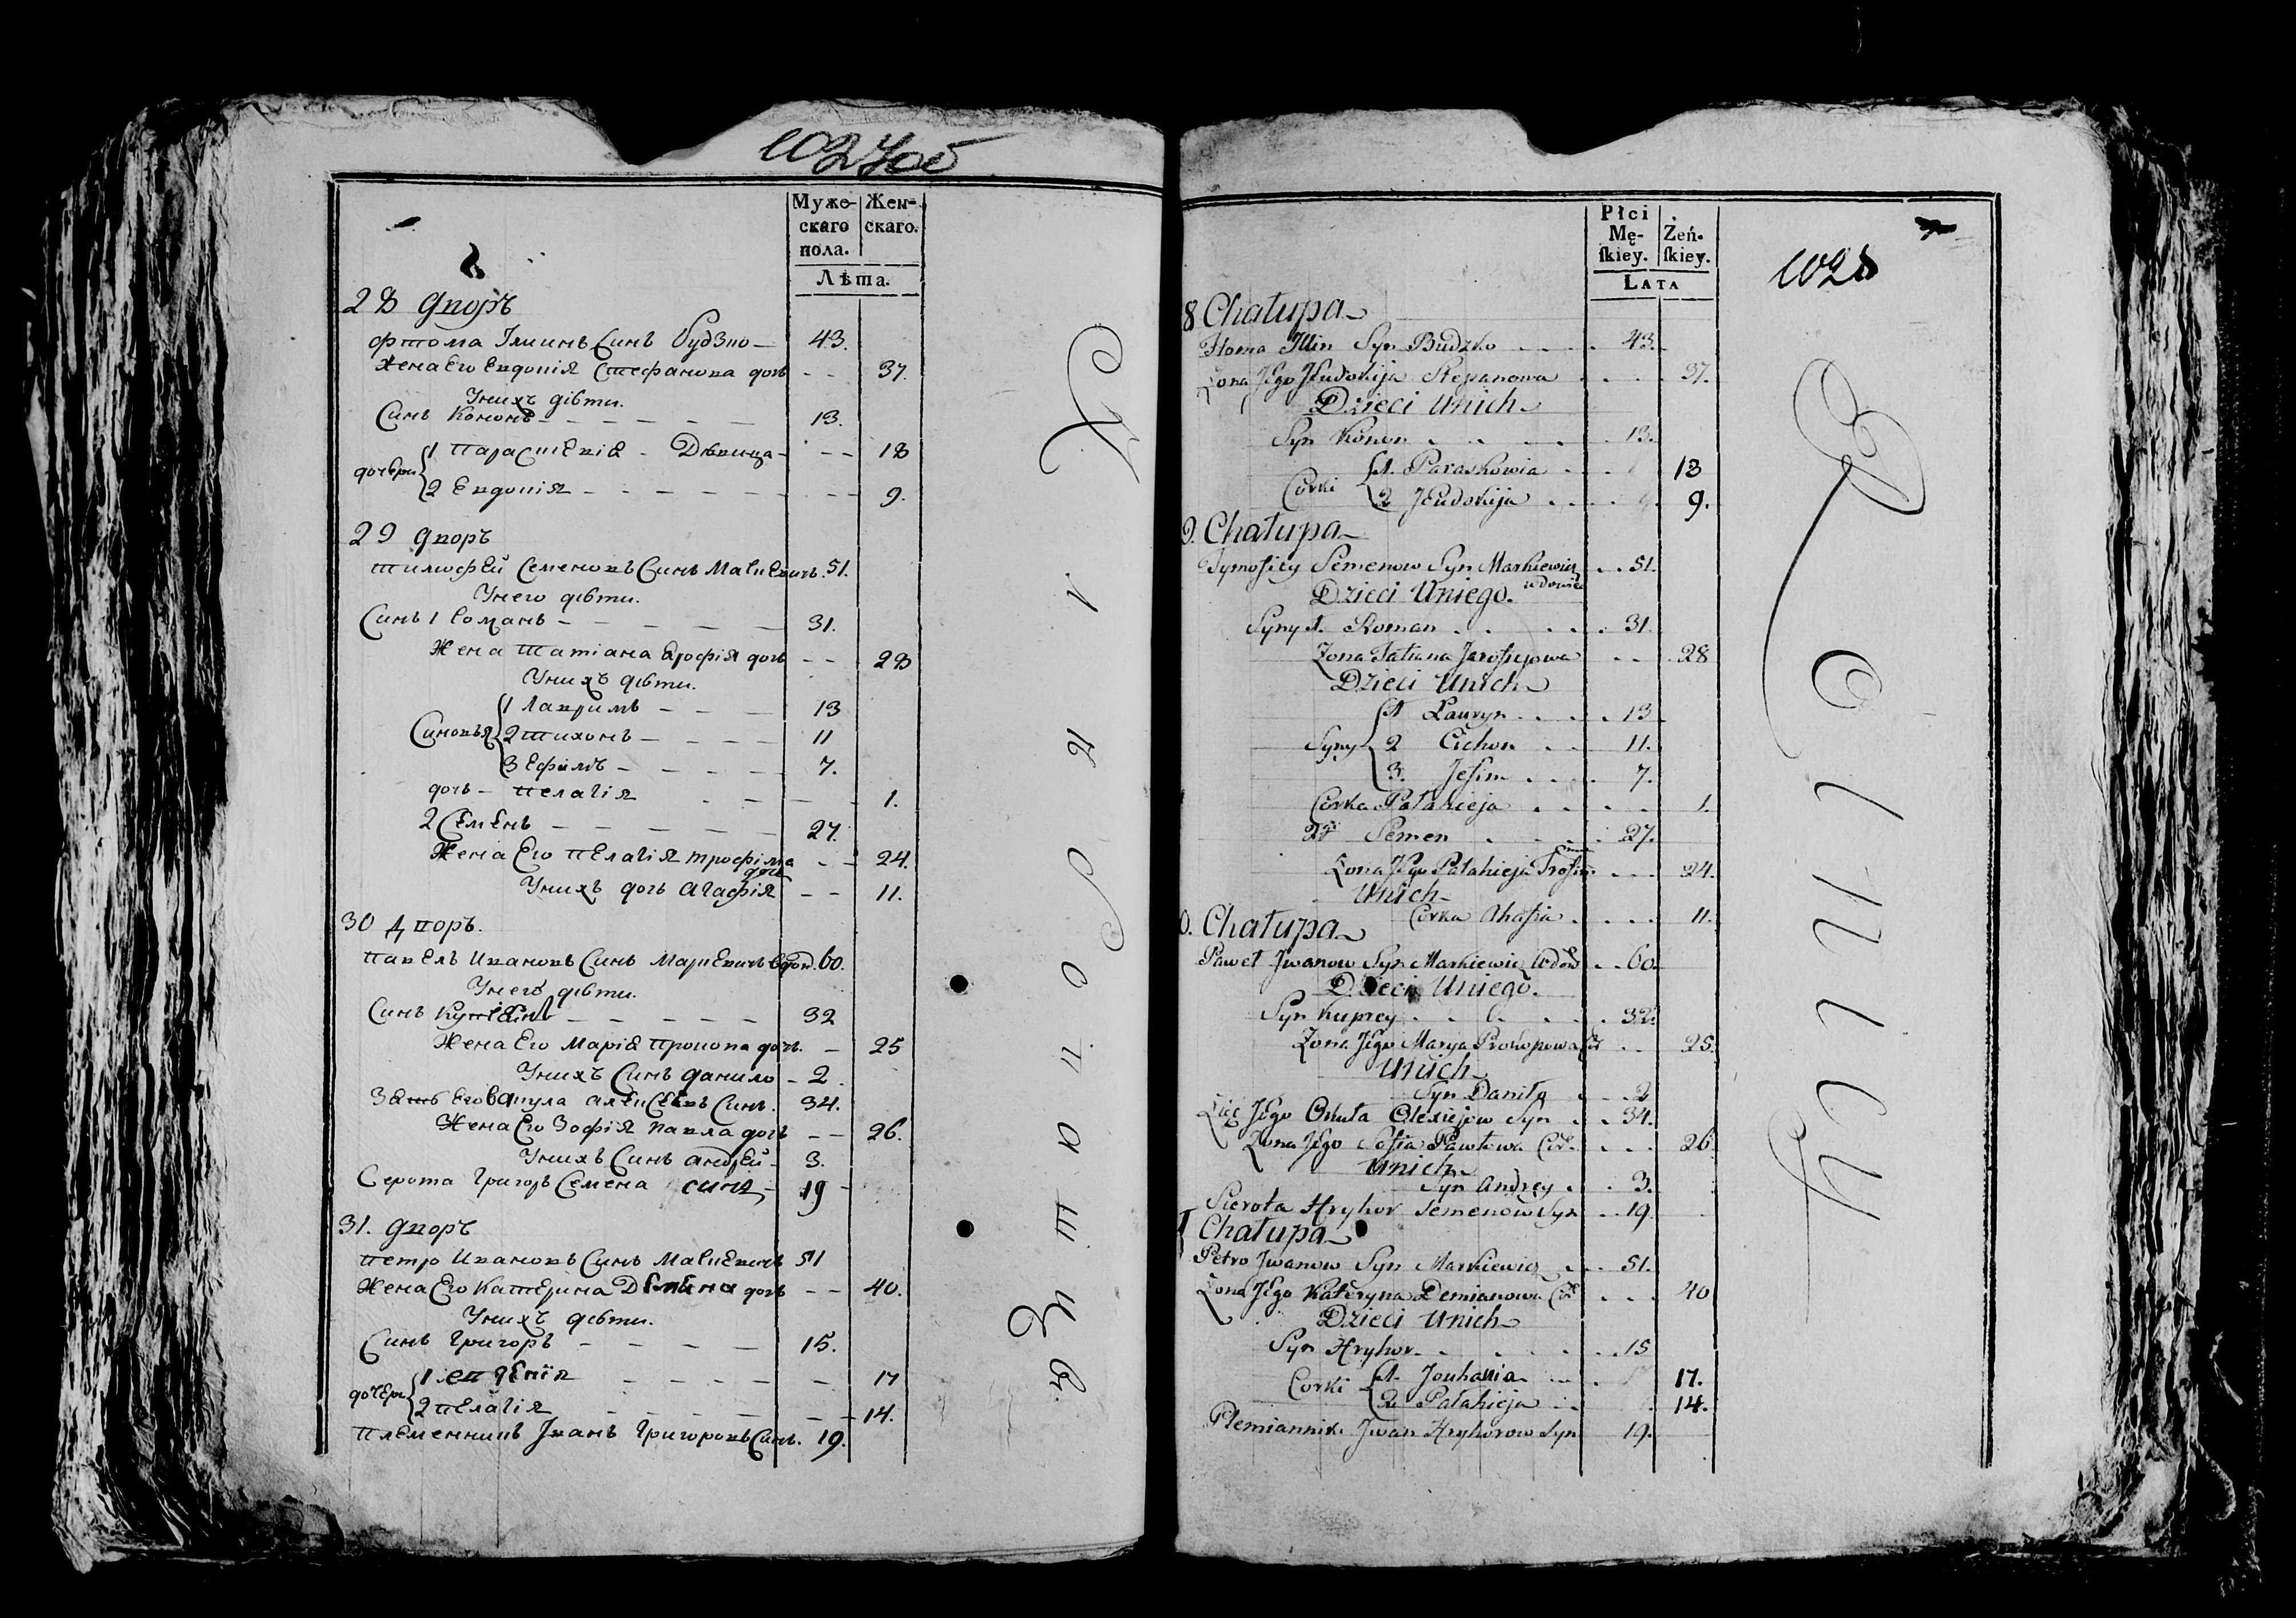 1027об
Муже-
скаго
пола.
Жен-
скаго.
Лѣта.
28 дворъ
Фтома Илиинъ Синъ Будзко — 43.
Жена Его Евдокія Стефанова дочь - - 37.
Унихъ дѣти.
Синъ Кононъ - - - - - - 13.
дочери 1 Параскевія - Дѣвица - - - 18
2 Евдокія - - - - - - - 9.
29 дворъ
Тимофей Семеновъ Синъ Маркевичъ. 51.
Унего дѣти.
Синъ 1 Романъ - - - - - 31.
Жена Татіана Ерофія дочь - - 28
Унихъ дѣти.
Синовья 1 Лавримъ - - - 13
2 Тихонъ - - - - 11
3 Ефимъ - - - - 7.
дочь - Пелагія - - - 1.
2 Семенъ - - - - - 27.
Жена Его Пелагія Трофима дочь - - 24.
Унихъ дочь Агафія - - 11.
30 Дворъ.
Павелъ Ивановъ Синъ Маркевичъ вдов. 60.
Унего дѣти.
Синъ - - - - - 32
Жена Его Марія Прокопа дочь. - 25
Унихъ Синъ Данило - 2
Зять Его Вакула Алексеевъ Синъ. 34.
Жена Его Зофія Павла дочь - - 26.
Унихъ Синъ Андрей - 3.
Серота Григоръ Семена синъ - 19
31. дворъ
Петро Ивановъ Синъ Маркевичъ 51
Жена Его Катерина Демяна дочь - - 40.
Унихъ дѣти.
Синъ Григоръ - - - - 15.
дочери 1 Евгенія - - - - - 17
2 Пелагія - - - - - 14.
Племенникъ Іванъ Григоровъ Синъ. 19.
Płci
Mę-
ſkiey.
Żeń-
ſkiey.
LATA
1028
8 Chałupa
Homa Illin Syn Budzko . . . . 43.
Zona Jego Jeudokija Stepanowa . . . . 37.
Dzieci Unich
Syn Konon . . . . 13.
Corki 1. Paraskowia . . . 13
2 Jeudokija . . . 9.
9. Chałupa
Tymofiey Semenow Syn Markiewicz wdowiec . . 51.
Dzieci Uniego.
Syny 1. Roman . . . . . 31.
Zona Tatiana Jarofiejowa . . . 28
Dzieci Unich
Syny 1 Lauryn . . . . 13
2 Cichon . . . 11.
3. Jefim . . . . 7.
Corka Pałahieja . . . . . 1.
2gi Semen . . . . . 27.
Zona Jego Pałahieja Trofim . . . 24.
Unich
Corka Ahafia . . . . 11.
0. Chałupa
Paweł Jwanow Syn Markiewicz Wdow . . 60.
Dzieci Uniego.
Syn Kuprey . . . . . . 32.
Zona Jego Marya Prokopowa Cor . . 25.
Unich
Syn Daniło . . 2
Zięć Jego Okuła Olexiejow Syn . . 34.
Zona Jego Sofia Pawłowa Cor. . . . 26.
Unich
Syn Andrey . . 3.
Sierota Hryhor Semenow Syn . . 19.
1 Chałupa
Petro Jwanow Syn Markiewicz . . . 51.
Zona Jego Kateryna Demianowa Cor . . . 40
Dzieci Unich
Syn Hryhor . . . . . . 15
Corki 1. Jouhania . . . 17.
2. Pałahieja . . . 14.
Plemiannik Jwan Hryhorow Syn 19.